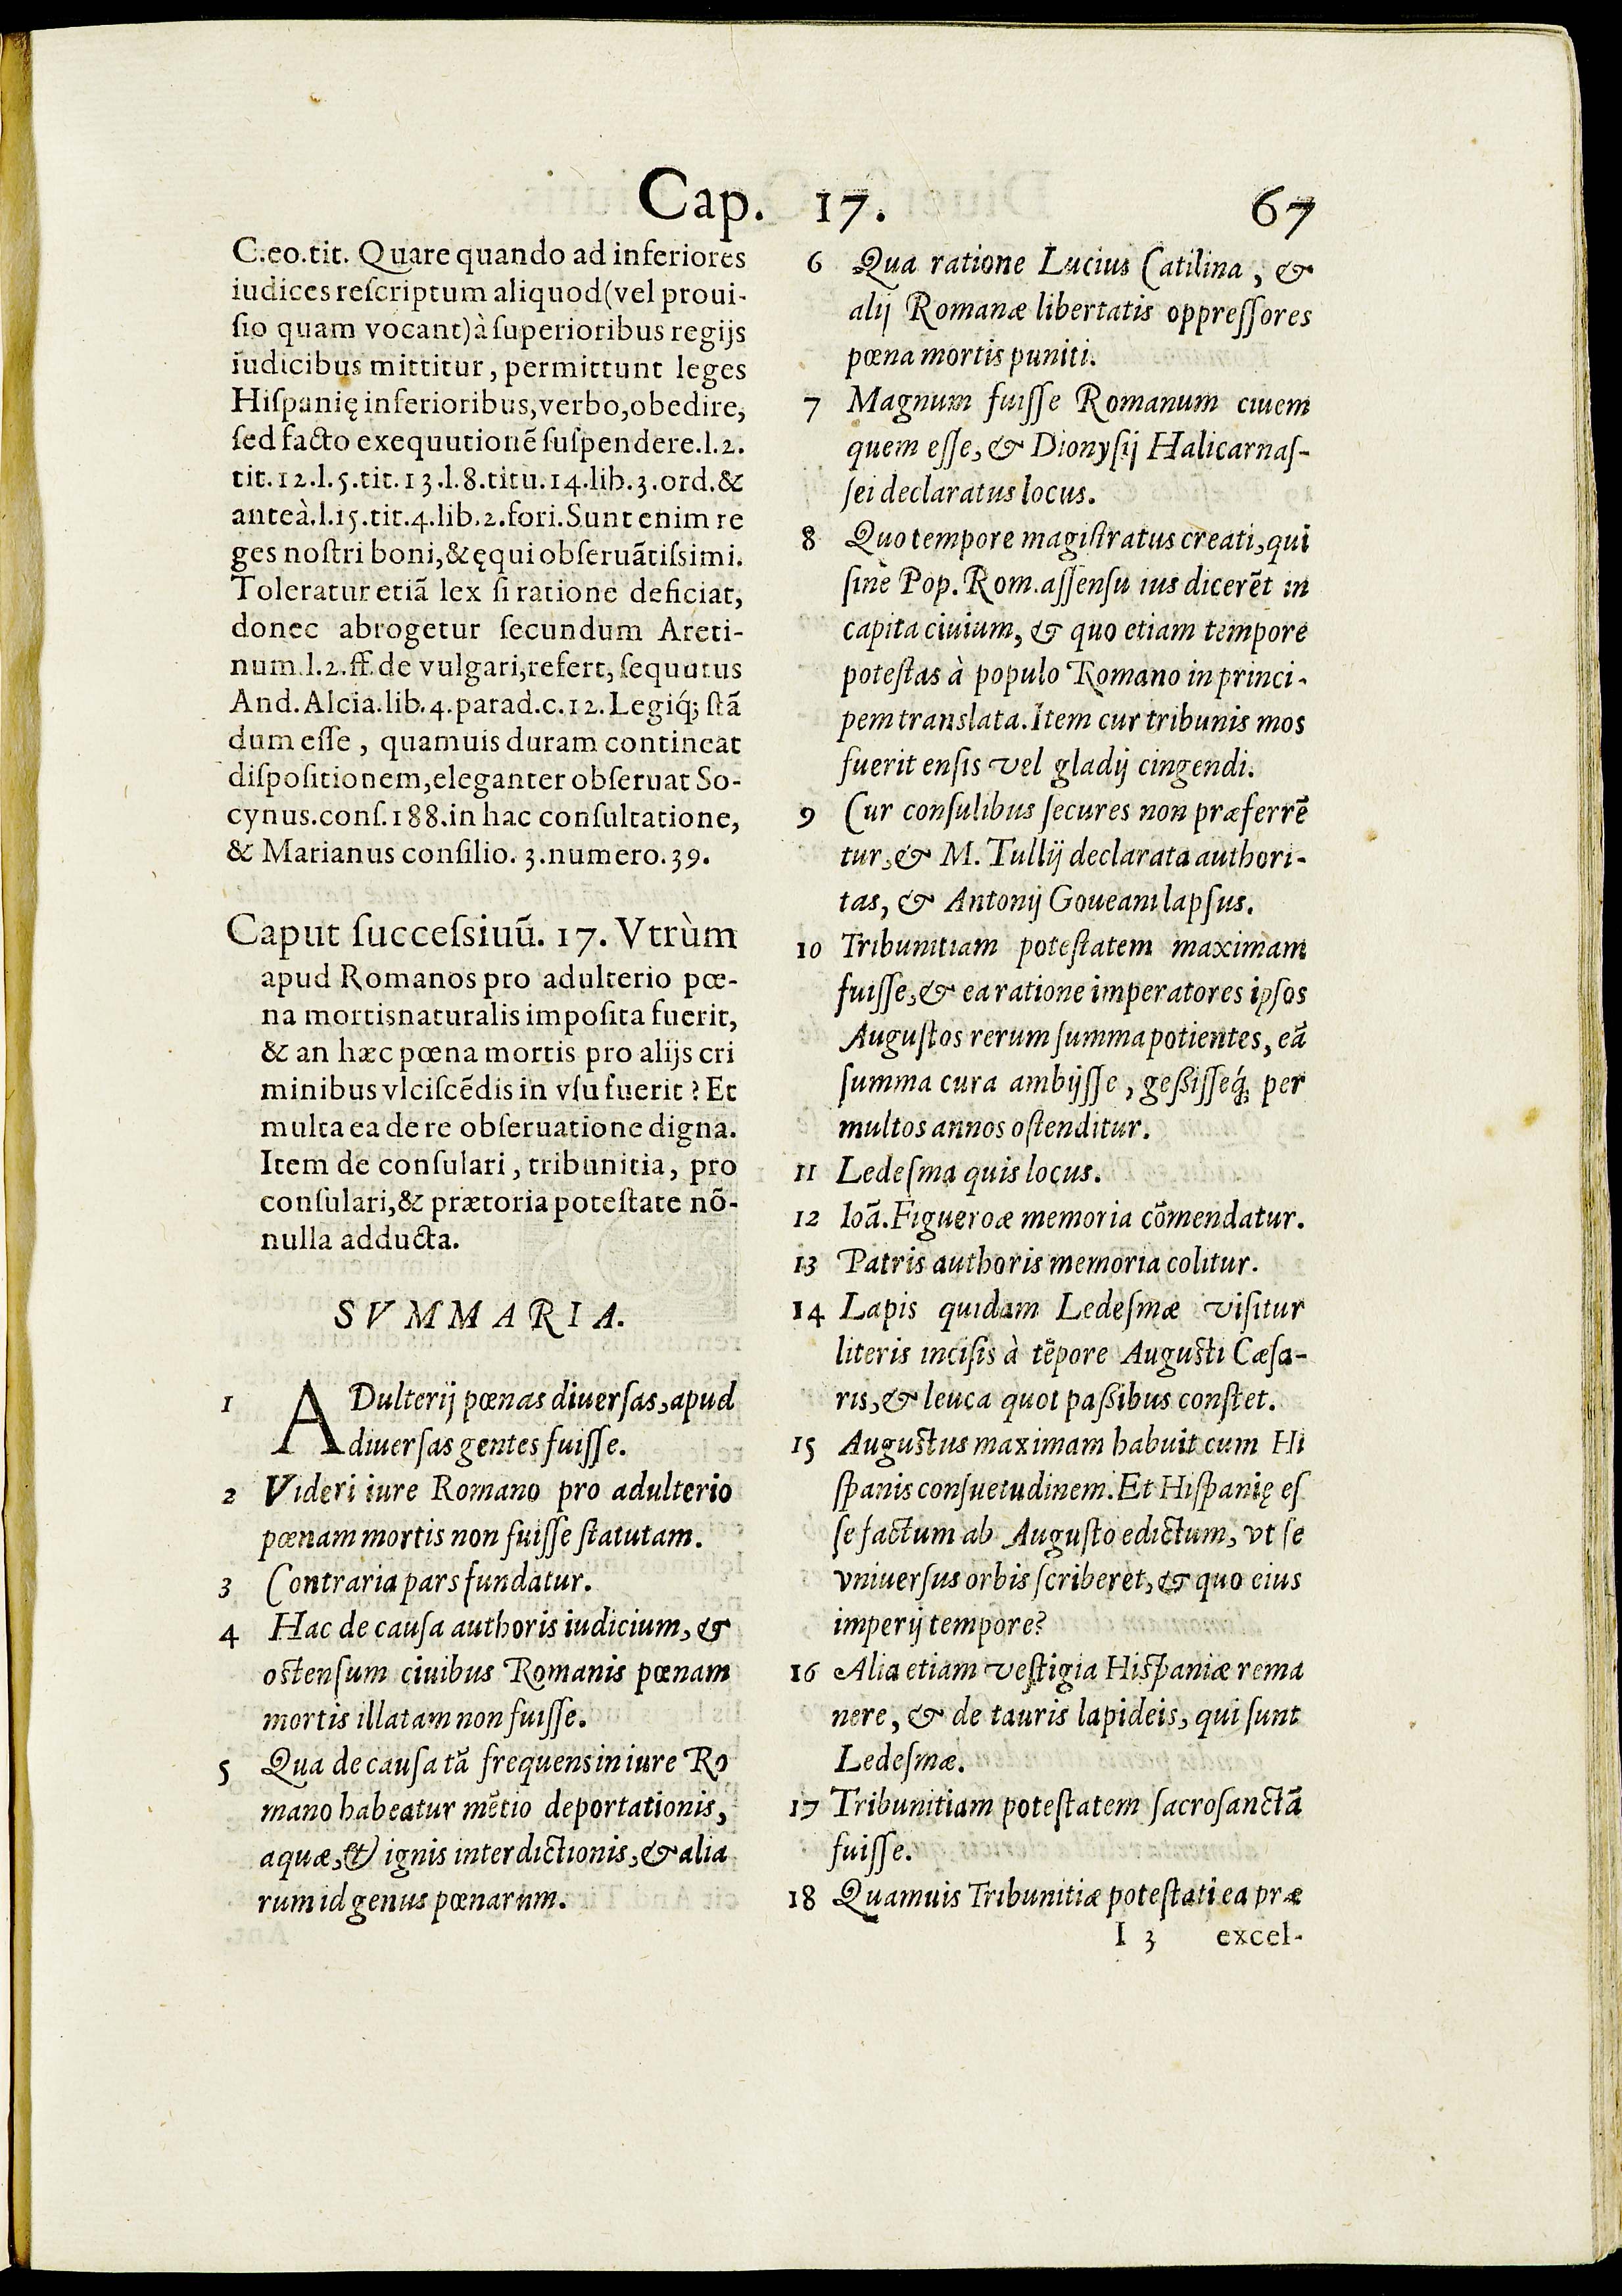 Cap. 17. 67
C.eo.tit. Quare quando ad inferiores
iudices reſcriptum aliquod(vel proui-
ſio quam vocant)à ſuperioribus regijs
iudicibus mittitur, permittunt leges
Hiſpanię inferioribus, verbo, obedire,
ſed facto exequutionẽ ſuſpendere.l.2.
tit.12.l.5.tit.13.l.8.titu.14.lib.3.ord.&
anteà.l.15.tit.4.lib.2.fori.Sunt enim re
ges noſtri boni,& ęqui obſeruãtiſsimi.
Toleratur etiã lex ſi ratione deficiat,
donec abrogetur ſecundum Areti-
num.l.2.ff.de vulgari,refert, ſequutus
And.Alcia.lib.4.parad.c.12.Legiq́; ſtã
dum eſſe, quamuis duram contineat
diſpoſitionem,eleganter obſeruat So-
cynus.conſ.188.in hac conſultatione,
& Marianus conſilio. 3.numero.39.
Caput ſucceſsiuũ. 17. Vtrùm
apud Romanos pro adulterio pœ-
na mortisnaturalis impoſita fuerit,
& an hæc pœna mortis pro alijs cri
minibus vlciſcẽdis in vſu fuerit? Et
multa ea de re obſeruatione digna.
Item de conſulari, tribunitia, pro
conſulari,& prætoria poteſtate nõ-
nulla adducta.
SVMMARIA.
1 ADulterij pœnas diuerſas, apud
diuerſas gentes fuiſſe.
2 Videri iure Romano pro adulterio
pœnam mortis non fuiſſe ſtatutam.
3 Contraria pars fundatur.
4 Hac de cauſa authoris iudicium, &
oſtenſum ciuibus Romanis pœnam
mortis illatam non fuiſſe.
5 Qua de cauſa tã frequens in iure Ro
mano habeatur mẽtio deportationis,
aquæ, & ignis interdictionis, & alia
rum id genus pœnarum.
6 Qua ratione Lucius Catilina, &
alij Romanæ libertatis oppreſſores
pœna mortis puniti.
7 Magnum fuiſſe Romanum ciuem
quem eſſe, & Dionyſij Halicarnaſ-
ſei declaratus locus.
8 Quo tempore magiſtratus creati, qui
ſine Pop. Rom. aſſenſu ius dicerẽt in
capita ciuium, & quo etiam tempore
poteſtas à populo Romano in princi-
pem translata. Item cur tribunis mos
fuerit enſis vel gladij cingendi.
9 Cur conſulibus ſecures non præferrẽ
tur, & M. Tullij declarata authori-
tas, & Antonij Goueani lapſus.
10 Tribunitiam poteſtatem maximam
fuiſſe, & ea ratione imperatores ipſos
Auguſtos rerum ſumma potientes, eã
ſumma cura ambijſſe, geßiſſeq́; per
multos annos oſtenditur.
11 Ledeſma quis locus.
12 Ioã. Figueroæ memoria cõmendatur.
13 Patris authoris memoria colitur.
14 Lapis quidam Ledeſmæ viſitur
literis inciſis à tẽpore Auguſti Cæſa-
ris, & leuca quot paßibus conſtet.
15 Auguſtus maximam habuit cum Hi
ſpanis conſuetudinem. Et Hiſpanię eſ
ſe factum ab Auguſto edictum, vt ſe
vniuerſus orbis ſcriberet, & quo eius
imperij tempore?
16 Alia etiam veſtigia Hiſpaniæ rema
nere, & de tauris lapideis, qui ſunt
Ledeſmæ.
17 Tribunitiam poteſtatem ſacroſanctã
fuiſſe.
18 Quamuis Tribunitiæ poteſtati ea præ
I 3 excel-